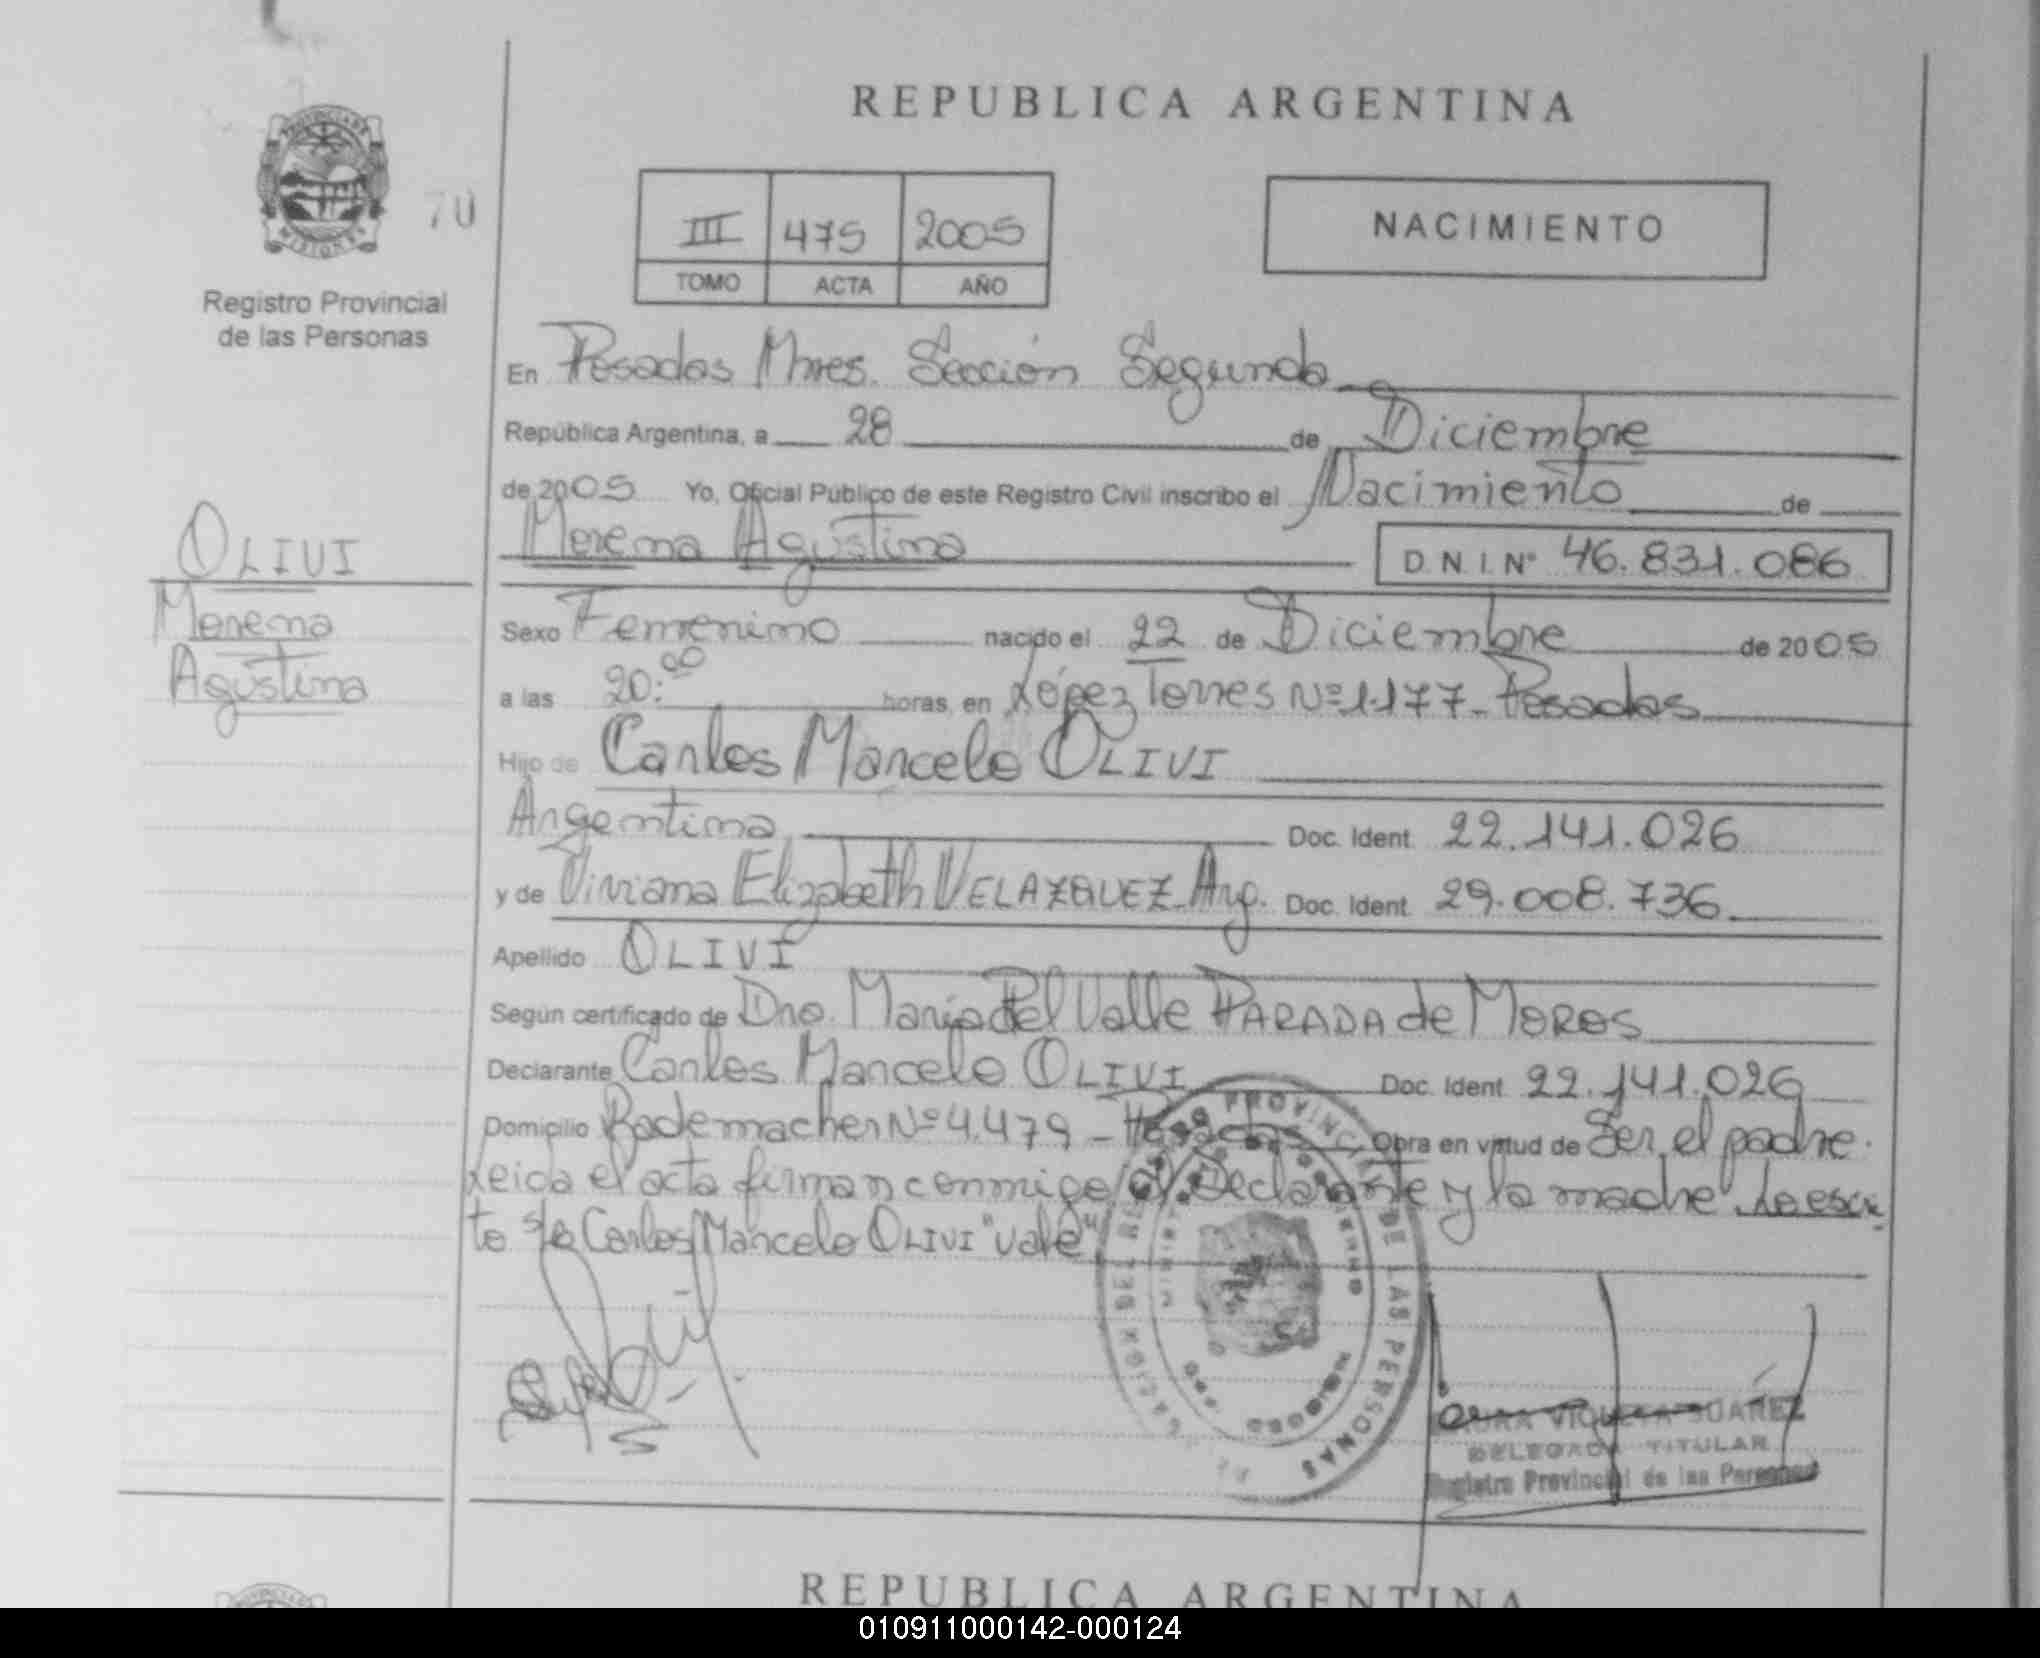 REPUBLICA ARGENTINA
PROVINCIA DE
MISIONES
70
Registro Provincial
de las Personas
III 475 2005
TOMO ACTA AÑO
NACIMIENTO
En Posadas Mnes. Sección Segunda
República Argentina, a 28 de Diciembre
de 2005 Yo, Oficial Público de este Registro Civil inscribo el Nacimiento de
Morena Agustina
D.N.I.Nº 46.831.086
OLIVI
Morena
Agustina
Sexo Femenino nacido el 22 de Diciembre de 2005
a las 20:00 horas, en López Torres Nº 1.177 - Posadas
Hijo de Carlos Marcelo OLIVI
Argentina Doc. Ident. 22.141.026
y de Viviana Elizabeth VELAZQUEZ Arg. Doc. Ident. 29.008.736
Apellido OLIVI
Según certificado de Dra. María Del Valle PARADA de MOROS
Declarante Carlos Marcelo OLIVI Doc. Ident. 22.141.026
Domicilio Rademacher Nº 4.479 - Posadas Obra en virtud de Ser el padre.
Leida el acta firman conmigo el Declarante y la madre. Lo escri
to s/r Carlos Marcelo OLIVI "Vale"
REGISTRO PROVINCIAL DE LAS PERSONAS
LAURA VIOLETA SUÁREZ
DELEGADA TITULAR
Registro Provincial de las Personas
REPUBLICA ARGENTINA
010911000142-000124